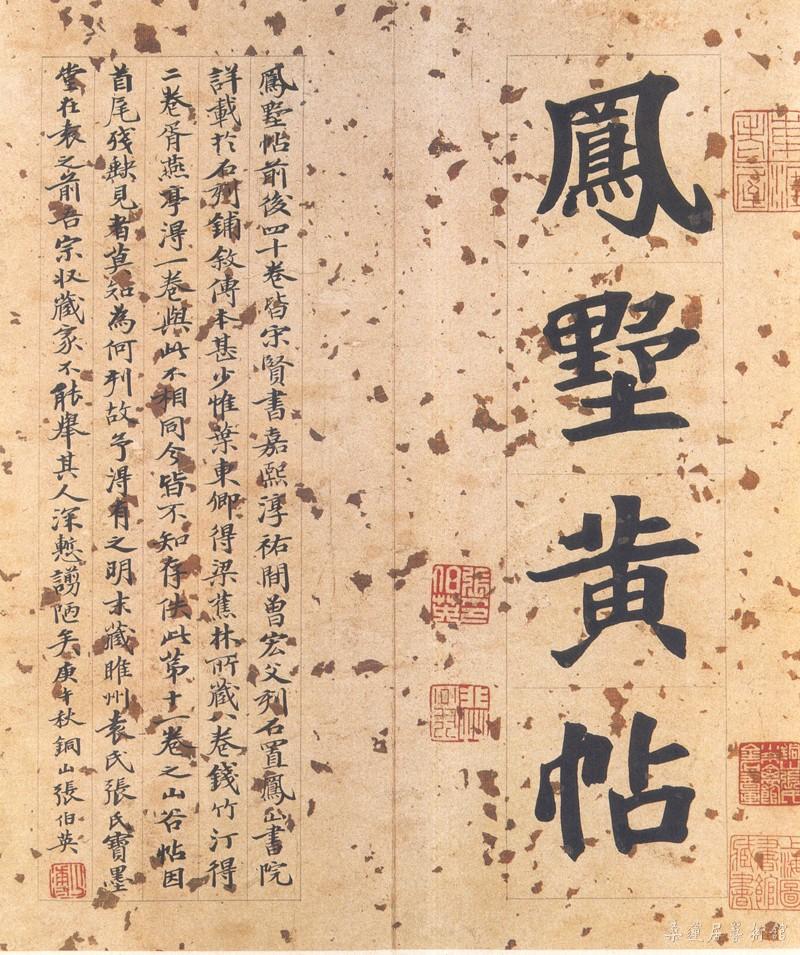 鳳墅黃帖
鳳墅帖前後四十卷皆宋賢書嘉熙淳祐間曾宏父刻石置鳳山書院
詳載於石刻鋪敘傳本甚少惟葉東卿得梁蕉林所藏八卷錢竹汀得
二卷胥燕亭得一卷與此不相同今皆不知存佚此第十一卷之山谷帖因
首尾殘缺見者莫知為何刻故予得有之明末藏睢州袁氏張氏寶墨
堂在袁之前吾宗收藏家不能舉其人深慙謭陋矣庚午秋銅山張伯英
張伯英
上海圖書館藏書
桑蓮居藝術館